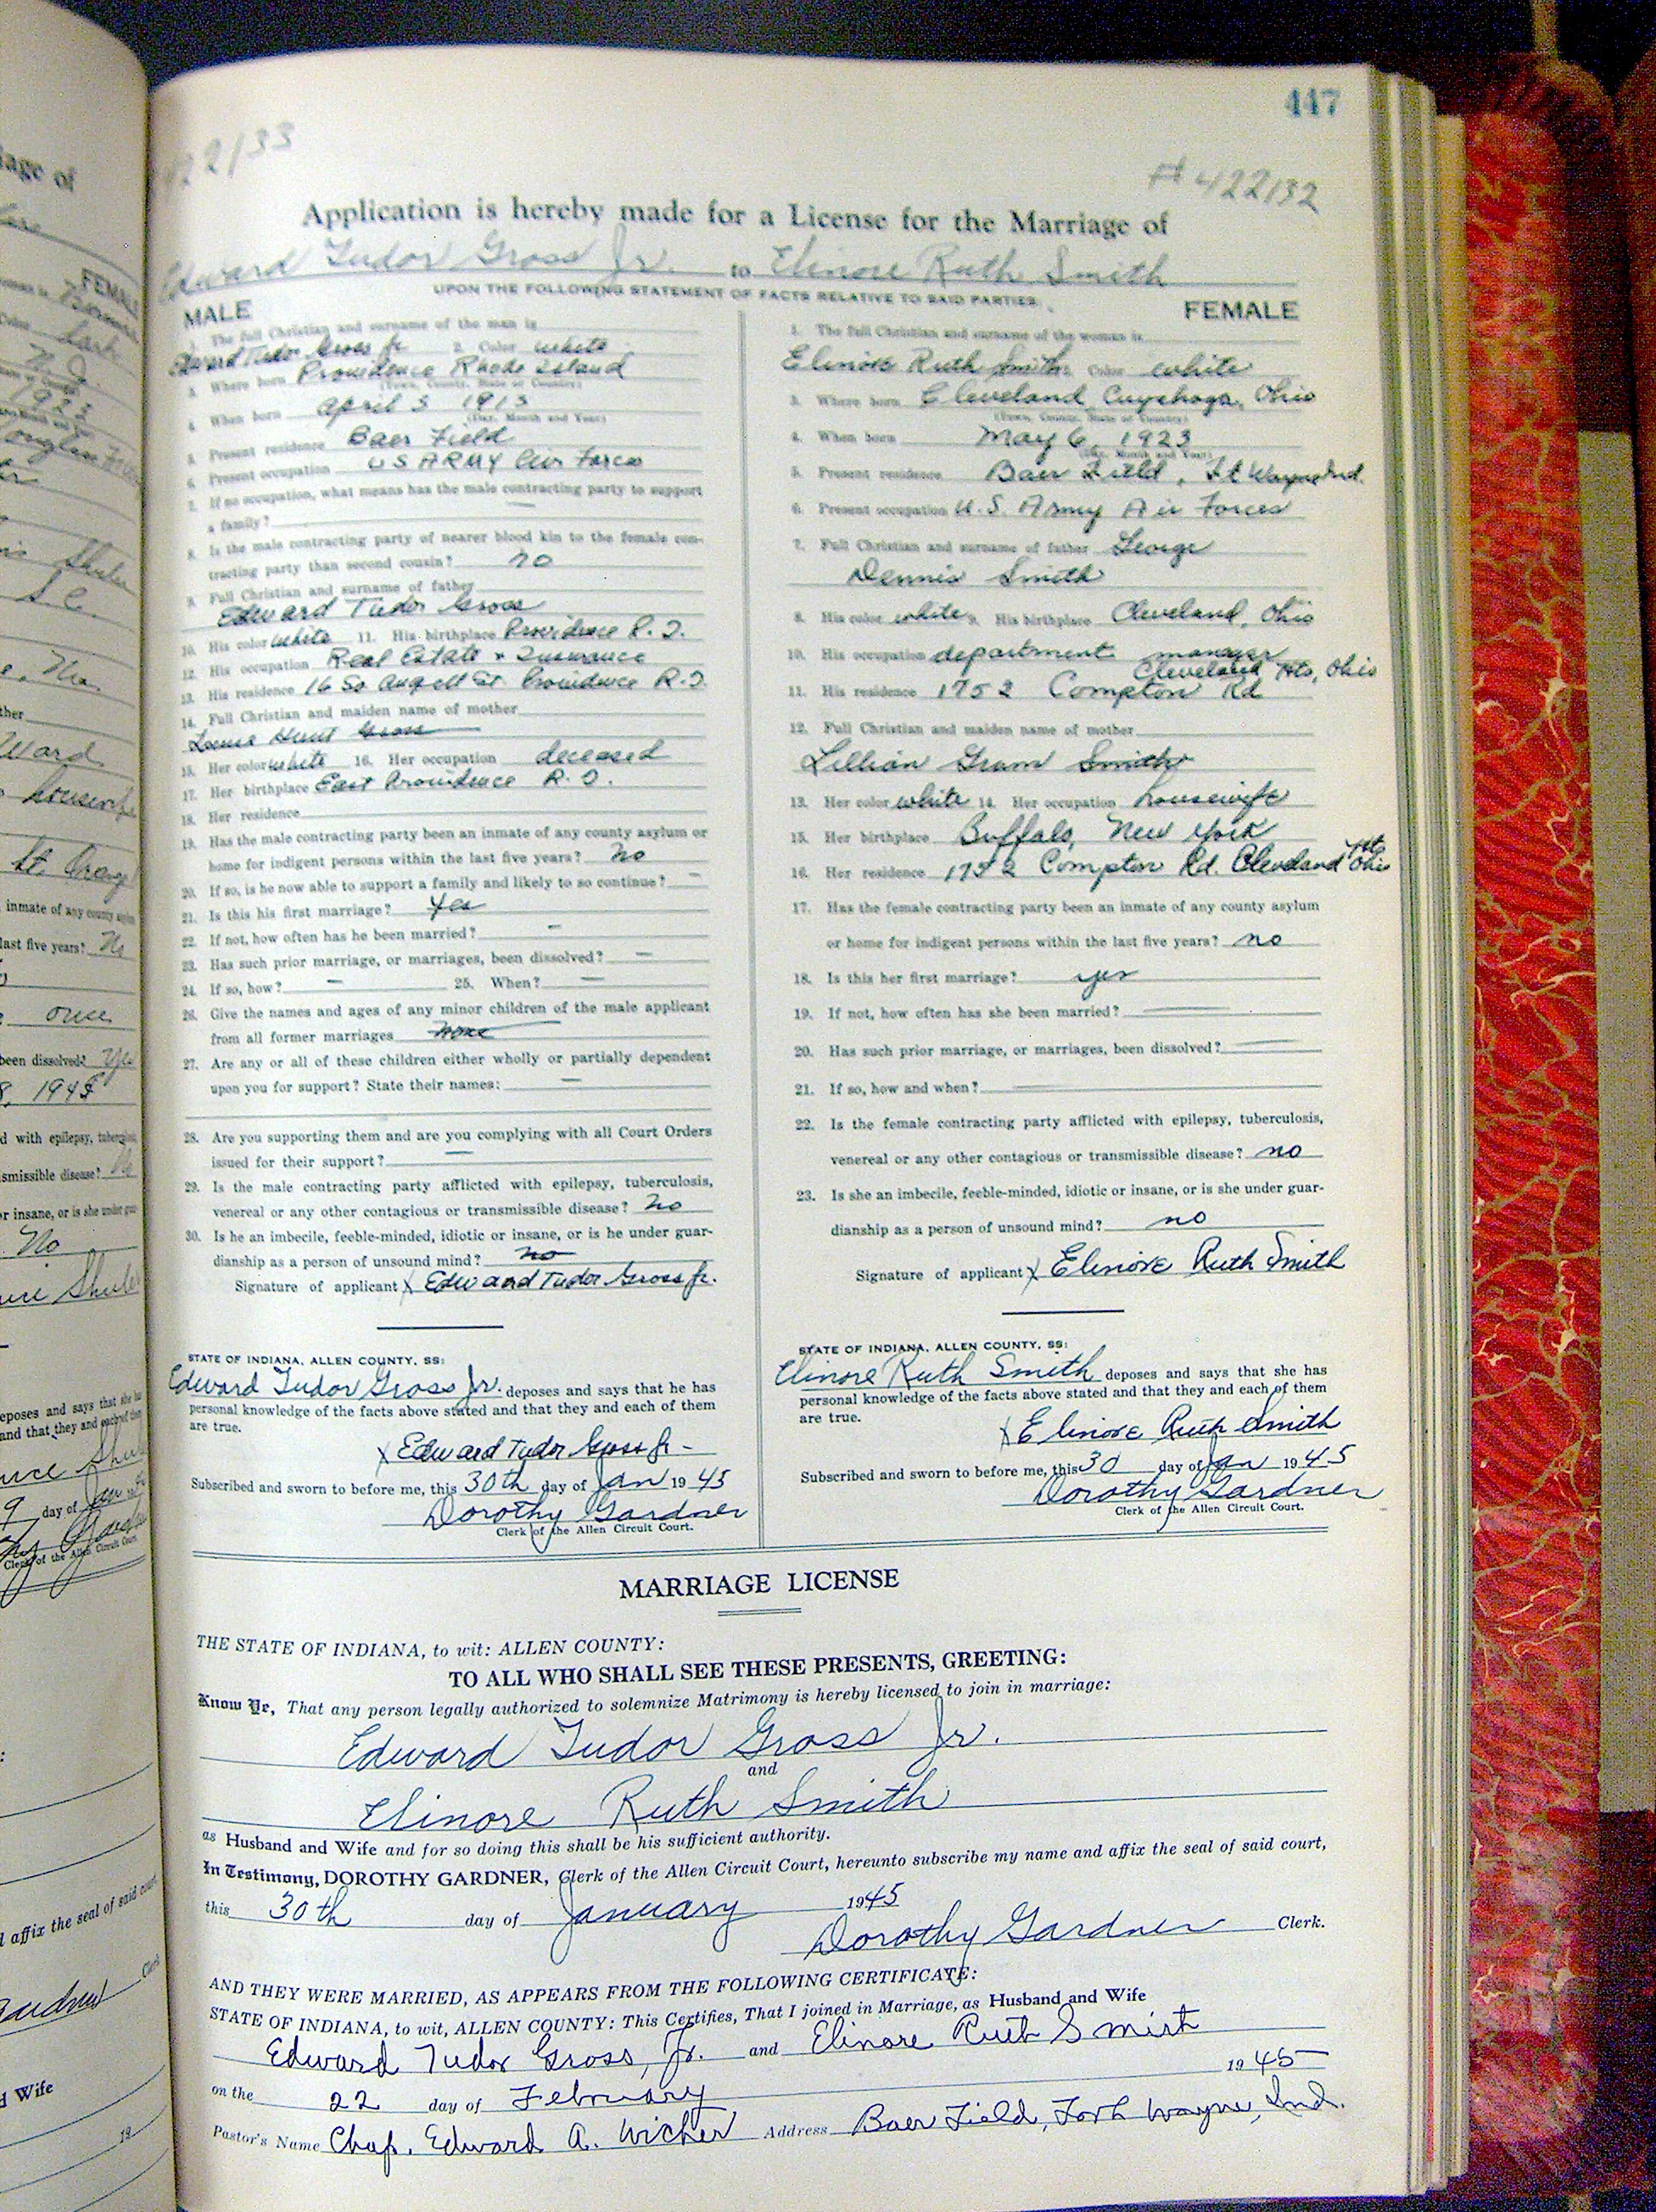 447
#422132
Application is hereby made for a License for the Marriage of
Edward Tudor Gross Jr. to Elinore Ruth Smith
UPON THE FOLLOWING STATEMENT OF FACTS RELATIVE TO SAID PARTIES.
MALE
1. The full Christian and surname of the man is
Edward Tudor Gross Jr 2. Color white
3. Where born Providence Rhode Island
(Town, County, State or Country)
4. When born April 3 1913
(Day, Month and Year)
5. Present residence Baer Field
6. Present occupation US ARMY Air Forces
7. If no occupation, what means has the male contracting party to support
a family? —
8. Is the male contracting party of nearer blood kin to the female con-
tracting party than second cousin? no
9. Full Christian and surname of father
Edward Tudor Gross
10. His color white 11. His birthplace Providence R. I.
12. His occupation Real Estate & Insurance
13. His residence 16 So Angell St Providence R.I.
14. Full Christian and maiden name of mother
Louise Hunt Gross
15. Her color white 16. Her occupation deceased
17. Her birthplace East Providence R. I.
18. Her residence
19. Has the male contracting party been an inmate of any county asylum or
home for indigent persons within the last five years? No
20. If so, is he now able to support a family and likely to so continue? —
21. Is this his first marriage? Yes
22. If not, how often has he been married? —
23. Has such prior marriage, or marriages, been dissolved? —
24. If so, how? — 25. When? —
26. Give the names and ages of any minor children of the male applicant
from all former marriages None
27. Are any or all of these children either wholly or partially dependent
upon you for support? State their names: —
28. Are you supporting them and are you complying with all Court Orders
issued for their support? —
29. Is the male contracting party afflicted with epilepsy, tuberculosis,
venereal or any other contagious or transmissible disease? No
30. Is he an imbecile, feeble-minded, idiotic or insane, or is he under guar-
dianship as a person of unsound mind? no
Signature of applicant X Edward Tudor Gross Jr.
STATE OF INDIANA, ALLEN COUNTY, SS:
Edward Tudor Gross Jr. deposes and says that he has
personal knowledge of the facts above stated and that they and each of them
are true.
X Edward Tudor Gross Jr-
Subscribed and sworn to before me, this 30th day of Jan 1945
Dorothy Gardner
Clerk of the Allen Circuit Court.
FEMALE
1. The full Christian and surname of the woman is
Elinore Ruth Smith Color white
3. Where born Cleveland, Cuyahoga, Ohio
(Town, County, State or Country)
4. When born May 6, 1923
(Day, Month and Year)
5. Present residence Baer Field, Ft Wayne Ind.
6. Present occupation U.S. Army Air Forces
7. Full Christian and surname of father George
Dennis Smith
8. His color white 9. His birthplace Cleveland, Ohio
10. His occupation department manager
Cleveland Hts, Ohio
11. His residence 1752 Compton Rd
12. Full Christian and maiden name of mother
Lillian Smith
13. Her color white 14. Her occupation housewife
15. Her birthplace Buffalo, New York
16. Her residence 1752 Compton Rd. Cleveland Hts Ohio
17. Has the female contracting party been an inmate of any county asylum
or home for indigent persons within the last five years? no
18. Is this her first marriage? yes
19. If not, how often has she been married?
20. Has such prior marriage, or marriages, been dissolved?
21. If so, how and when?
22. Is the female contracting party afflicted with epilepsy, tuberculosis,
venereal or any other contagious or transmissible disease? no
23. Is she an imbecile, feeble-minded, idiotic or insane, or is she under guar-
dianship as a person of unsound mind? no
Signature of applicant X Elinore Ruth Smith
STATE OF INDIANA, ALLEN COUNTY, SS:
Elinore Ruth Smith deposes and says that she has
personal knowledge of the facts above stated and that they and each of them
are true.
X Elinore Ruth Smith
Subscribed and sworn to before me, this 30 day of Jan 1945
Dorothy Gardner
Clerk of the Allen Circuit Court.
MARRIAGE LICENSE
THE STATE OF INDIANA, to wit: ALLEN COUNTY:
TO ALL WHO SHALL SEE THESE PRESENTS, GREETING:
Know Ye, That any person legally authorized to solemnize Matrimony is hereby licensed to join in marriage:
Edward Tudor Gross Jr.
and
Elinore Ruth Smith
as Husband and Wife and for so doing this shall be his sufficient authority.
In Testimony, DOROTHY GARDNER, Clerk of the Allen Circuit Court, hereunto subscribe my name and affix the seal of said court,
this 30th day of January 1945
Dorothy Gardner Clerk.
AND THEY WERE MARRIED, AS APPEARS FROM THE FOLLOWING CERTIFICATE:
STATE OF INDIANA, to wit, ALLEN COUNTY: This Certifies, That I joined in Marriage, as Husband and Wife
Edward Tudor Gross, Jr. and Elinore Ruth Smith
on the 22 day of February 1945
Pastor's Name Chap. Edward A. Wicher Address Baer Field, Fort Wayne, Ind.